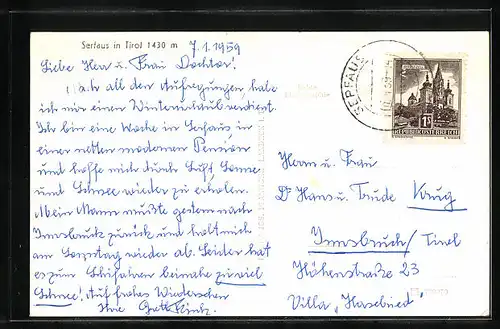 Serfaus in Tirol 1430 m 7.1.1959
Liebe Herr u. Frau Doktor!
Nach all den Aufregungen habe
ich mir einen Winterurlaub verdient.
Ich bin eine Woche in Serfaus, in
einer netten modernen Pension
und hoffe mich durch Luft, Sonne
und Schnee wieder zu erholen.
Mein Mann mußte gestern nach
Innsbruck zurück und holt mich
am Sonntag wieder ab. Leider hat
es zum Skifahren beinahe zuviel
Schnee! Auf frohes Wiedersehen
Ihre
SERFAUS
1S
REPUBLIK ÖSTERREICH
Herrn u. Frau
Dr Hans u. Trude Krug
Innsbruck / Tirol
Höhenstraße 23
Villa „Haselried"